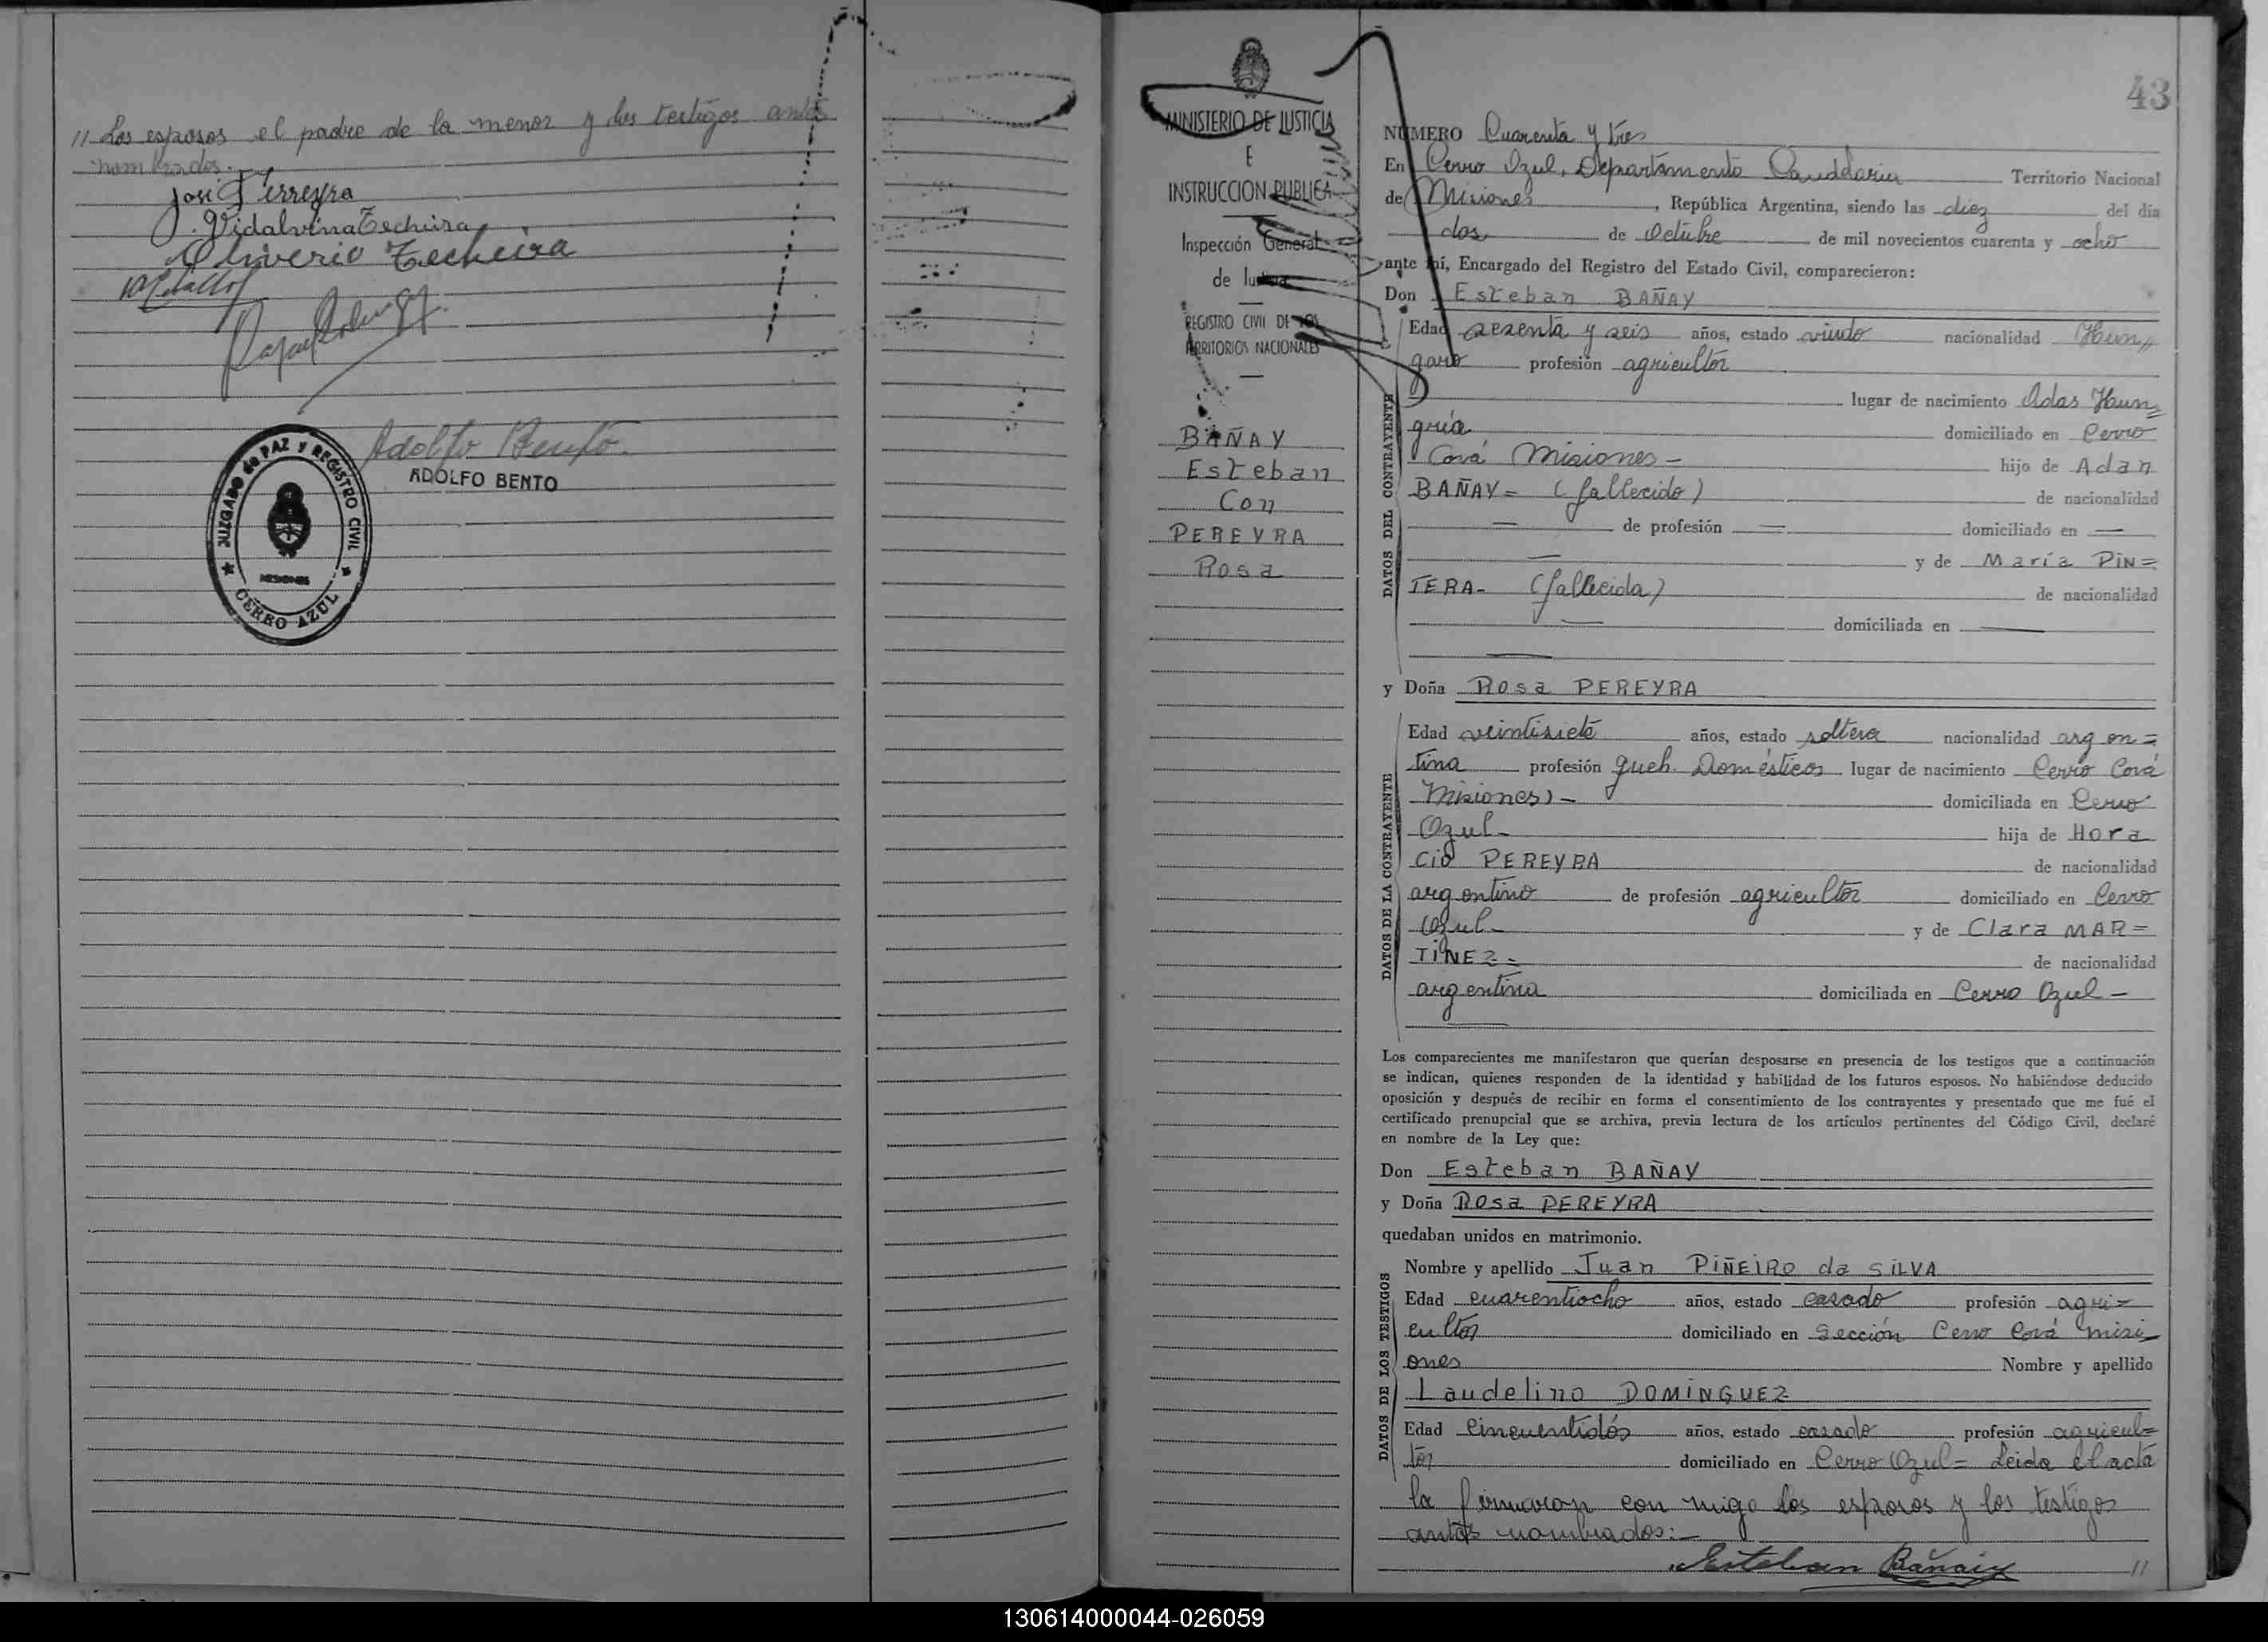 // Los esposos el padre de la menor y los testigos antes
nombrados.
José Ferreyra
Vidalvina Techeira
Oliverio Techeira
Adolfo Bento
ADOLFO BENTO
JUZGADO de PAZ Y REGISTRO CIVIL
MISIONES
CERRO AZUL
MINISTERIO DE JUSTICIA
E
INSTRUCCION PUBLICA
Inspección General
de Justicia
REGISTRO CIVIL DE LOS
TERRITORIOS NACIONALES
BAÑAY
Esteban
Con
PEREYRA
Rosa
43
NUMERO Cuarenta y tres
En Cerro Azul, Departamento Candelaria Territorio Nacional
de Misiones, República Argentina, siendo las diez del día
dos de Octubre de mil novecientos cuarenta y ocho
ante mí, Encargado del Registro del Estado Civil, comparecieron:
Don Esteban BAÑAY
DATOS DEL CONTRAYENTE
Edad sesenta y seis años, estado viudo nacionalidad Hun,,
garo profesión agricultor
lugar de nacimiento Adas Hun=
gría domiciliado en Cerro
Corá Misiones- hijo de Adan
BAÑAY= (fallecido) de nacionalidad
— de profesión — domiciliado en —
— y de María PIN=
TERA- (fallecida) de nacionalidad
— domiciliada en —
—
y Doña Rosa PEREYRA
DATOS DE LA CONTRAYENTE
Edad veintisiete años, estado soltera nacionalidad argen=
tina profesión queh. Domésticos lugar de nacimiento Cerro Corá
Misiones)- domiciliada en Cerro
Azul- hija de Hora
cio PEREYRA de nacionalidad
argentino de profesión agricultor domiciliado en Cerro
Azul- y de Clara MAR=
TINEZ= de nacionalidad
argentina domiciliada en Cerro Azul-
Los comparecientes me manifestaron que querían desposarse en presencia de los testigos que a continuación
se indican, quienes responden de la identidad y habilidad de los futuros esposos. No habiéndose deducido
oposición y después de recibir en forma el consentimiento de los contrayentes y presentado que me fué el
certificado prenupcial que se archiva, previa lectura de los artículos pertinentes del Código Civil, declaré
en nombre de la Ley que:
Don Esteban BAÑAY
y Doña Rosa PEREYRA
quedaban unidos en matrimonio.
DATOS DE LOS TESTIGOS
Nombre y apellido Juan PIÑEIRO da SILVA
Edad cuarentiocho años, estado casado profesión agri=
cultor domiciliado en Sección Cerro Corá Misi-
ones Nombre y apellido
Laudelino DOMINGUEZ
Edad Cincuentidós años, estado casado profesión agricul=
tor domiciliado en Cerro Azul= Leida el acta
la firmaron con migo los esposos y los testigos
antes nombrados:-
Esteban Bañaiy //
130614000044-026059